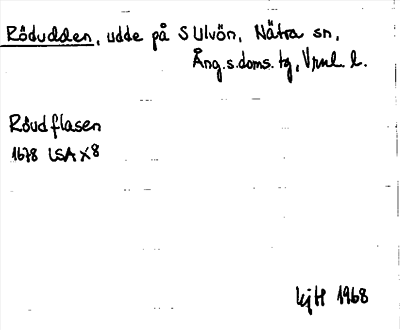 Rödudden, udde på S Ulvön, Nätra sn,
Ång.s.doms. tg, Vrnl. l.
Röudflasen
1678 LSA X8
kjH 1968